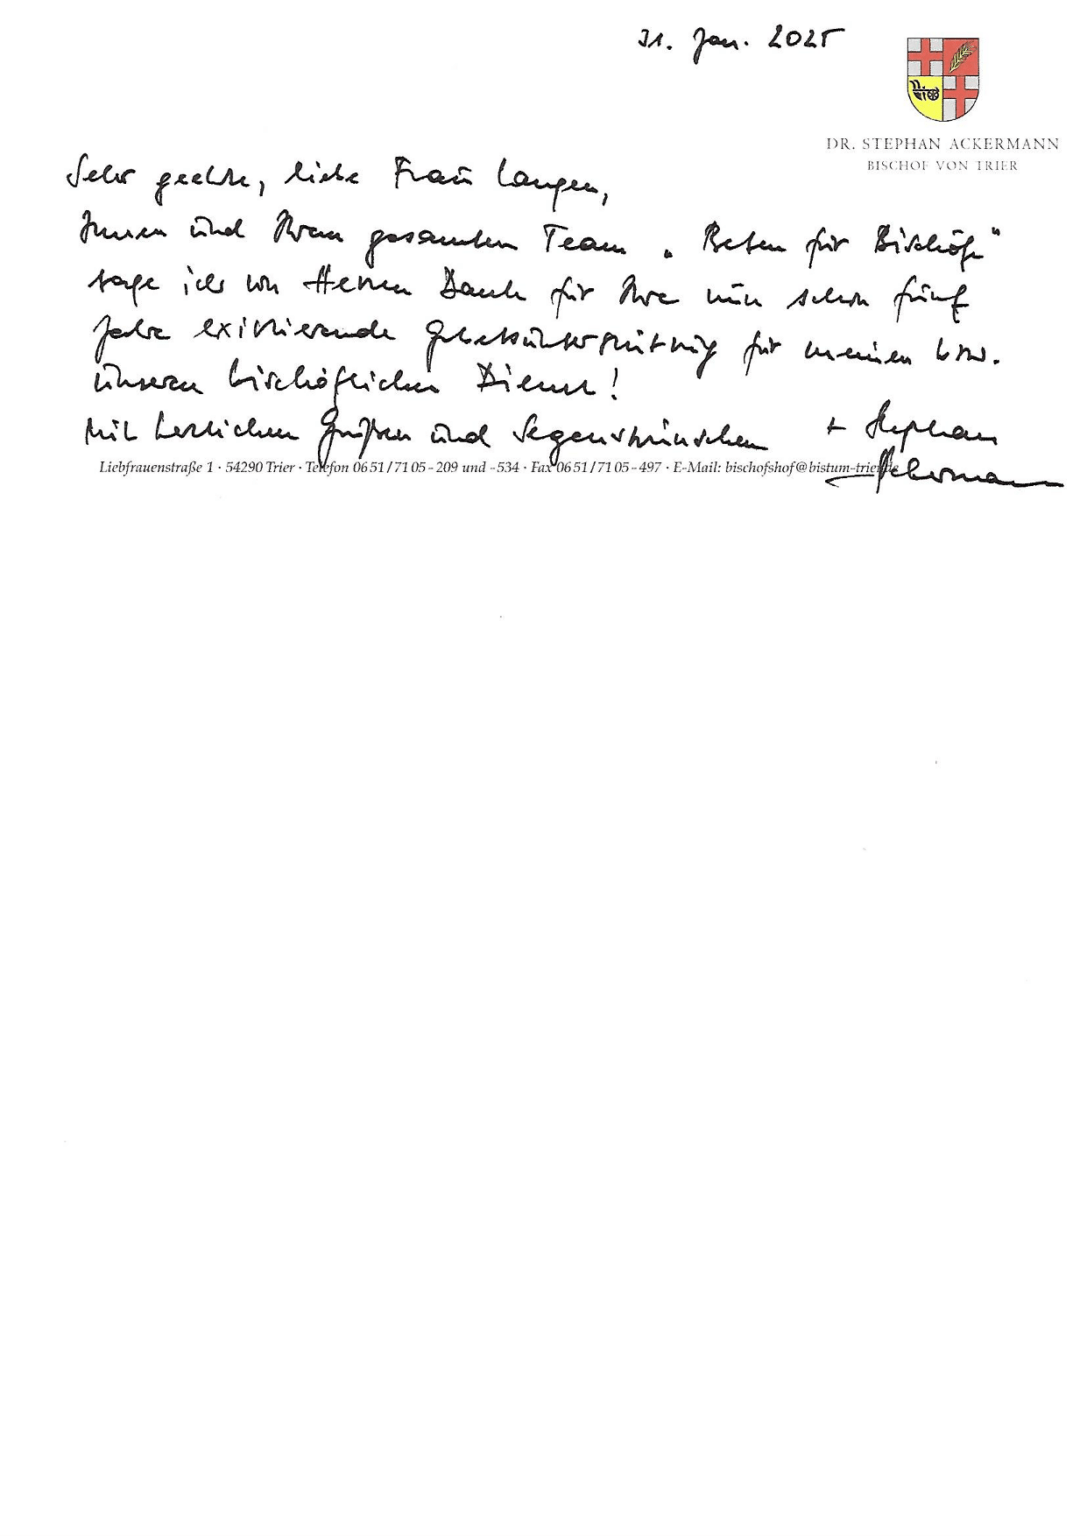 31. Jan. 2025
DR. STEPHAN ACKERMANN
BISCHOF VON TRIER
Sehr geehrte, liebe Frau Langen,
Ihnen und Ihrem gesamten Team „Beten für Bischöfe“
sage ich von Herzen Dank für Ihre nun schon fünf
Jahre existierende Gebetsunterstützung für meinen bzw.
unseren bischöflichen Dienst!
Mit herzlichen Grüßen und Segenswünschen
+ Stephan
Ackermann
Liebfrauenstraße 1 · 54290 Trier · Telefon 06 51 / 71 05 - 209 und - 534 · Fax 06 51 / 71 05 - 497 · E-Mail: bischofshof@bistum-trier.de